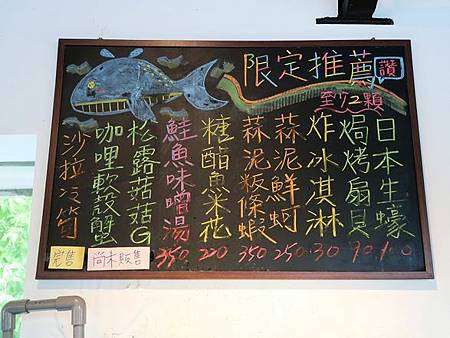 限定推薦
讚
至少2顆
日本生蠔 100
焗烤扇貝 90
炸冰淇淋 30
蒜泥鮮蚵 250
蒜泥粄條蝦 350
糖醋魚米花 200
鮭魚味噌湯 350
松露菇菇G
咖哩軟殼蟹
沙拉冷筍
尚未販售
完售